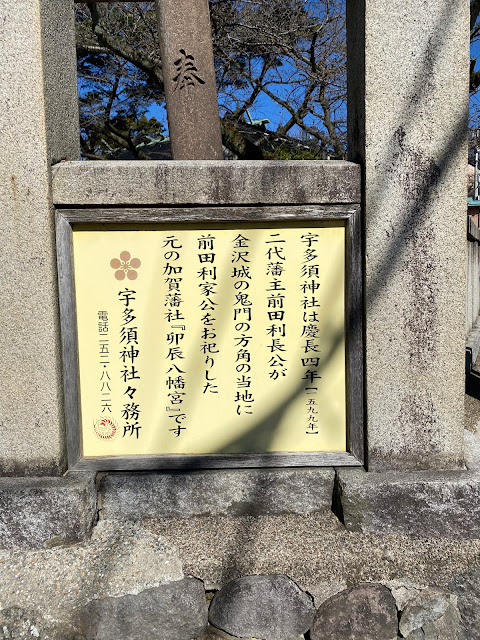 奉
宇多須神社は慶長四年【一五九九年】
二代藩主前田利長公が
金沢城の鬼門の方角の当地に
前田利家公をお祀りした
元の加賀藩社『卯辰八幡宮』です
宇多須神社々務所
電話二五二・八八二六